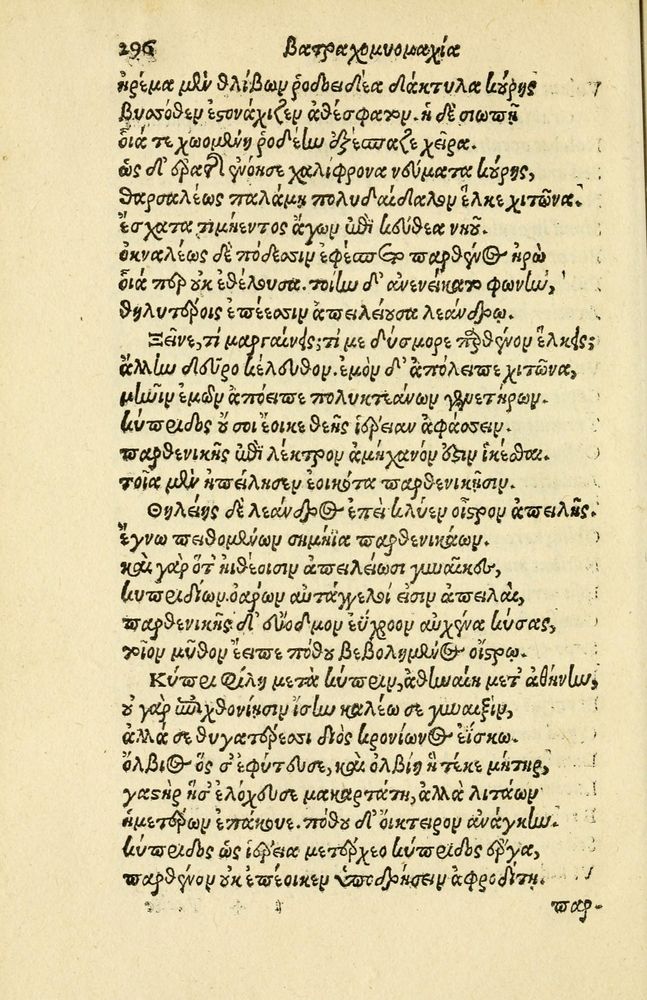 296 Βατραχομυομαχία
ἠρέμα μὲν θλίβων ῥοδοειδέα δάκτυλα κούρης
βυσσόθεν ἐστονάχιζεν ἀθέσφατον. ἡ δὲ σιωπῇ
οἷά τε χωομένη ῥοδέην ἐξέσπασε χεῖρα.
ὡς δ' ἐρατῆς ἐνόησε χαλίφρονα νεύματα κούρης,
θαρσαλέως παλάμῃ πολυδαίδαλον ἕλκε χιτῶνα.
ἔσχατα τιμήεντος ἄγων ἐπὶ κεύθεα νηοῦ.
ὀκναλέως δὲ πόδεσσιν ἐφέσπετο παρθένος ἡρὼ
οἷά περ οὐκ ἐθέλουσα. τοίην δ' ἀνενείκατο φωνὴν,
θηλυτέροις ἐπέεσσιν ἀπειλείουσα λεάνδρῳ.
Ξεῖνε, τί μαργαίνεις; τί με δύσμορε παρθένον ἕλκεις;
ἄλλην δεῦρο κέλευθον. ἐμὸν δ' ἀπόλειπε χιτῶνα,
μῆνιν ἐμῶν ἀπόειπε πολυκτεάνων γενετήρων.
κύπριδος οὔ σοι ἔοικε θεῆς ἱέρειαν ἀφάσσειν.
παρθενικῆς ἐπὶ λέκτρον ἀμήχανόν ἐστιν ἱκέσθαι.
τοῖα μὲν ἠπείλησεν ἐοικότα παρθενικῇσιν.
Θηλείης δὲ λεάνδρος ἐπεὶ κλύεν οἶστρον ἀπειλῆς.
ἔγνω πειθομένων σημήϊα παρθενικάων.
καὶ γὰρ ὅτ' ἠϊθέοισιν ἀπειλείωσι γυναῖκες,
κυπριδίων ὀάρων αὐτάγγελοί εἰσιν ἀπειλαί,
παρθενικῆς δ' εὔοδμον εὔχροον αὐχένα κύσας,
τοῖον μῦθον ἔειπε πόθου βεβολημένος οἴστρῳ.
Κύπρι φίλη μετὰ κύπριν, ἀθηναίη μετ' ἀθήνην,
οὐ γὰρ ἐπιχθονίῃσιν ἴσην καλέω σε γυναιξίν,
ἀλλά σε θυγατέρεσσι διὸς κρονίωνος ἐΐσκω.
ὄλβιος ὅς σ' ἐφύτευσε, καὶ ὀλβίη ἣ τέκε μήτηρ,
γαστὴρ ἥ σ' ἐλόχευσε μακαρτάτη, ἀλλὰ λιτάων
ἡμετέρων ἐπάκουε. πόθου δ' οἴκτειρον ἀνάγκην.
κύπριδος ὡς ἱέρεια μετέρχεο κύπριδος ἔργα,
παρθένον οὐκ ἐπέοικεν ὑποδρήσσειν ἀφροδίτῃ.
παρ-